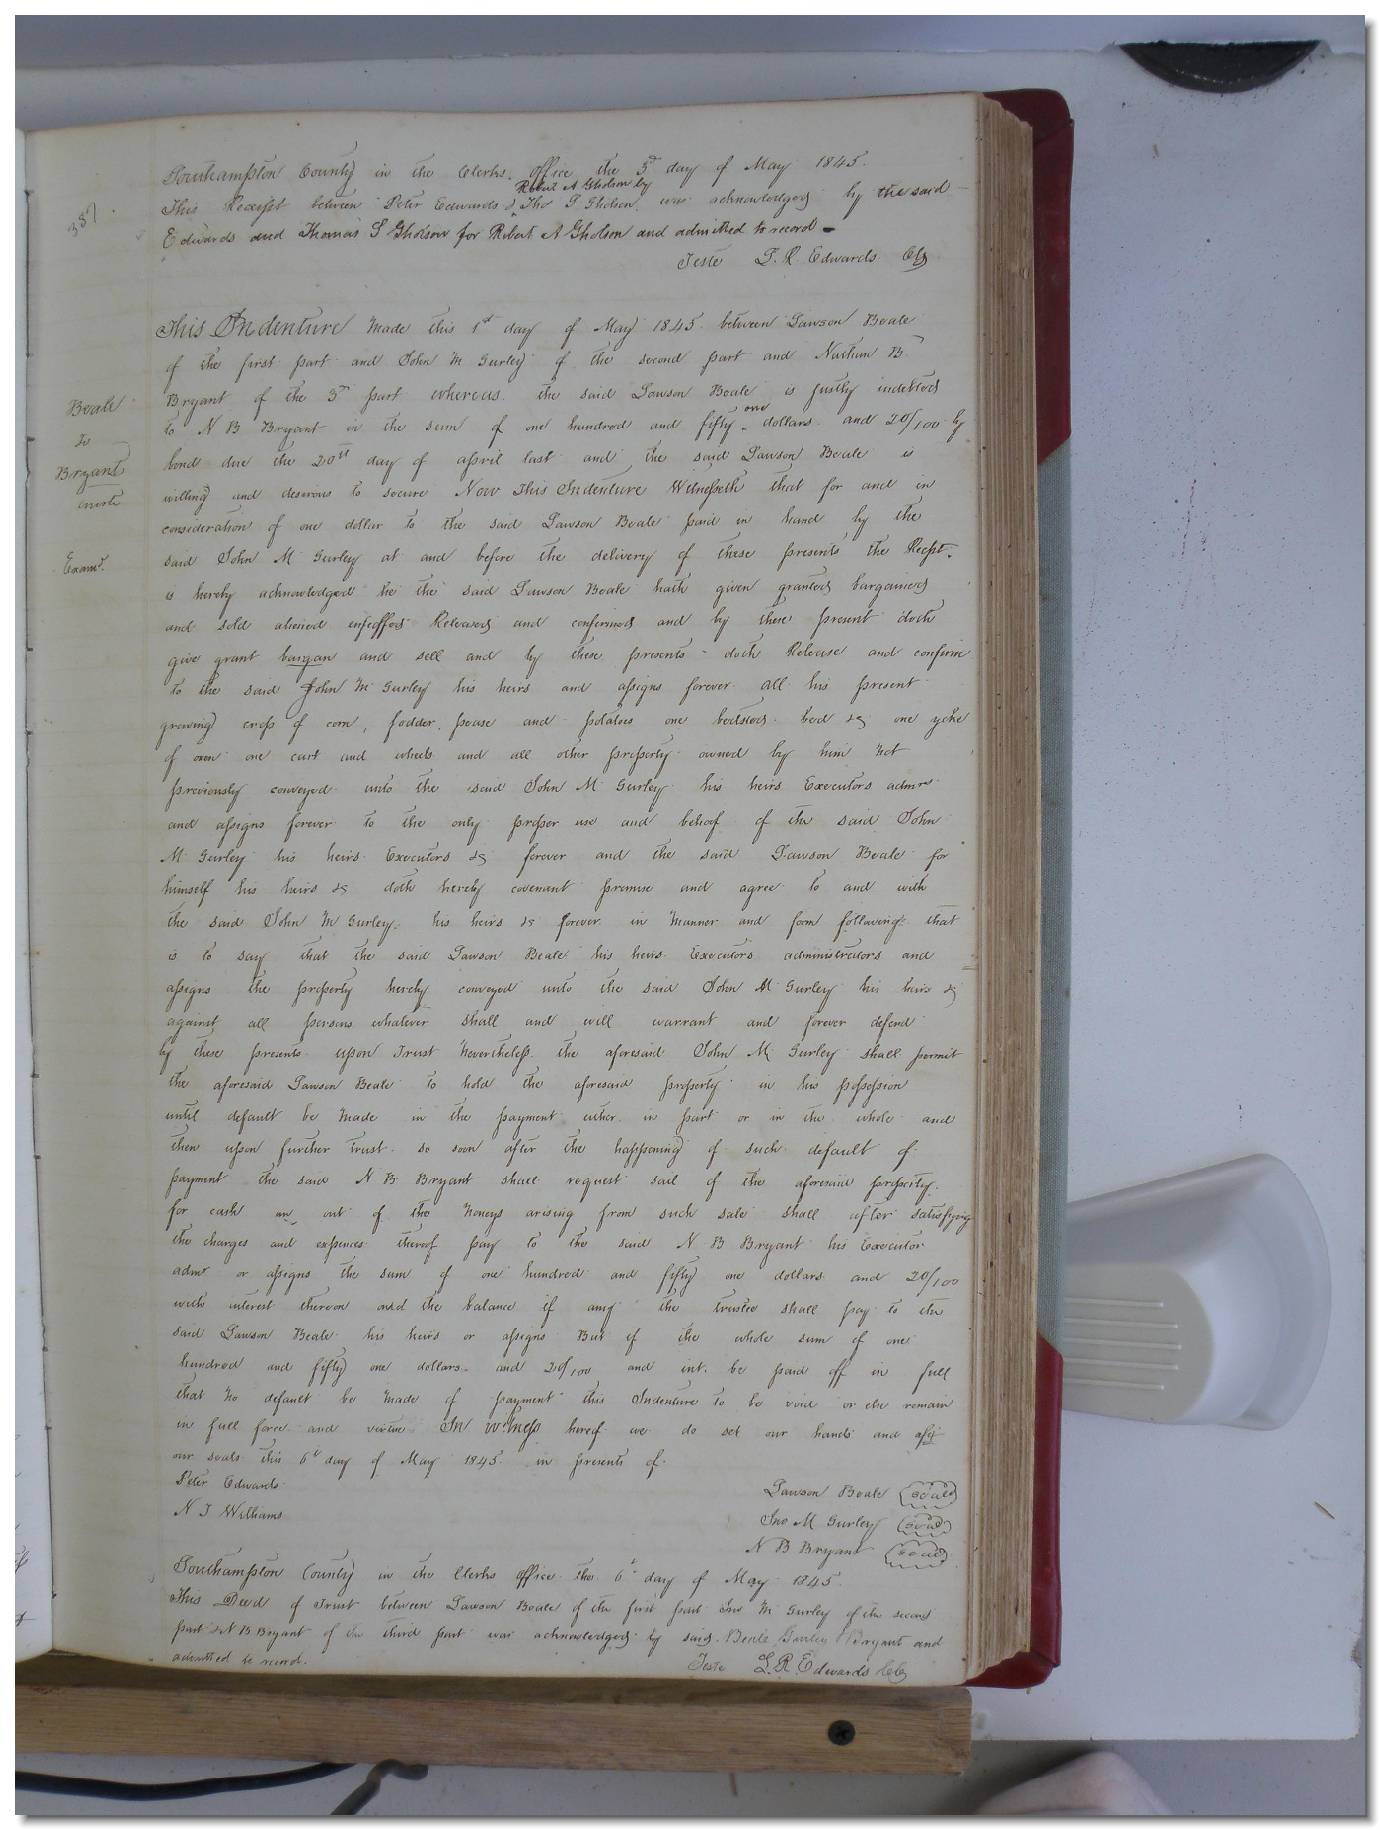 387.
Southampton County in the Clerks office the 3d day of May 1845.
Robert A Gholson by
This Receipt between Peter Edwards & Tho S Gholson was acknowledged by the said
Edwards and Thomas S Gholson for Robert A Gholson and admitted to record
Teste L. R Edwards Clk
This Indenture Made this 1st day of May 1845 between Lawson Beale
of the first part and John M Gurley of the second part and B.
Bryant of the 3d part whereas the said Lawson Beale is justly indebted
one
to N B Bryant in the sum of one hundred and fifty dollars and 20/100 by
bond due the 20th day of april last and the said Lawson Beale is
willing and desirous to secure Now This Indenture Witnesseth that for and in
consideration of one dollar to the said Lawson Beale paid in hand by the
said John M Gurley at and before the delivery of these presents the Recpt.
is hereby acknowledged he the said Lawson Beale hath given granted bargained
and sold aliened enfeoffed Released and confirmed and by these present doth
give grant bargan and sell and by these presents doth Release and confirm
to the said John M Gurley his heirs and assigns forever all his present
growing crop of corn, fodder, pease and potatoes one bedsted bed &c one yoke
of oxen one cart and wheels and all other property owned by him not
previously conveyed unto the said John M Gurley his heirs Executors admrs
and assigns forever to the only proper use and behoof of the said John
M Gurley his heirs Executors &c forever and the said Lawson Beale for
himself his heirs &c doth hereby covenant promise and agree to and with
the said John M Gurley his heirs &c forever in Manner and form following that
is to say that the said Lawson Beale his heirs Executors administrators and
assigns the property hereby conveyed unto the said John M Gurley his heirs &c
against all persons whatever shall and will warrant and forever defend
by these presents upon Trust Nevertheless the aforesaid John M Gurley shall permit
the aforesaid Lawson Beale to hold the aforesaid property in his possession
until default be Made in the payment either in part or in the whole and
then upon further trust so soon after the happening of such default of
payment the said N B Bryant shall request sail of the aforesaid property
for cash an out of the Moneys arising from such sale shall after satisfying
the charges and expences thereof pay to the said N B Bryant his Executor
admr or assigns the sum of one hundred and fifty one dollars and 20/100
with interest thereon and the balance if any the trustee shall pay to the
said Lawson Beale his heirs or assigns But if the whole sum of one
hundred and fifty one dollars and 20/100 and int. be paid off in full
that No default be Made of payment this Indenture to be void or else remain
in full force and virtue In witness hereof we do set our hands and
our seals this 6th day of May 1845 in presents of
Peter Edwards
N J Williams
Lawson Beale (seal)
Jno M Gurley (seal)
N B Bryant (seal)
Southampton County in the Clerks office the 6th day of May 1845.
This Deed of Trust between Lawson Beale of the first part Jno M Gurley of the second
part & N B Bryant of the third part was acknowledged by said Beale Gurley & Bryant and
admitted to record. Teste L. R Edwards Clk
Beale
To
Bryant
Examd.